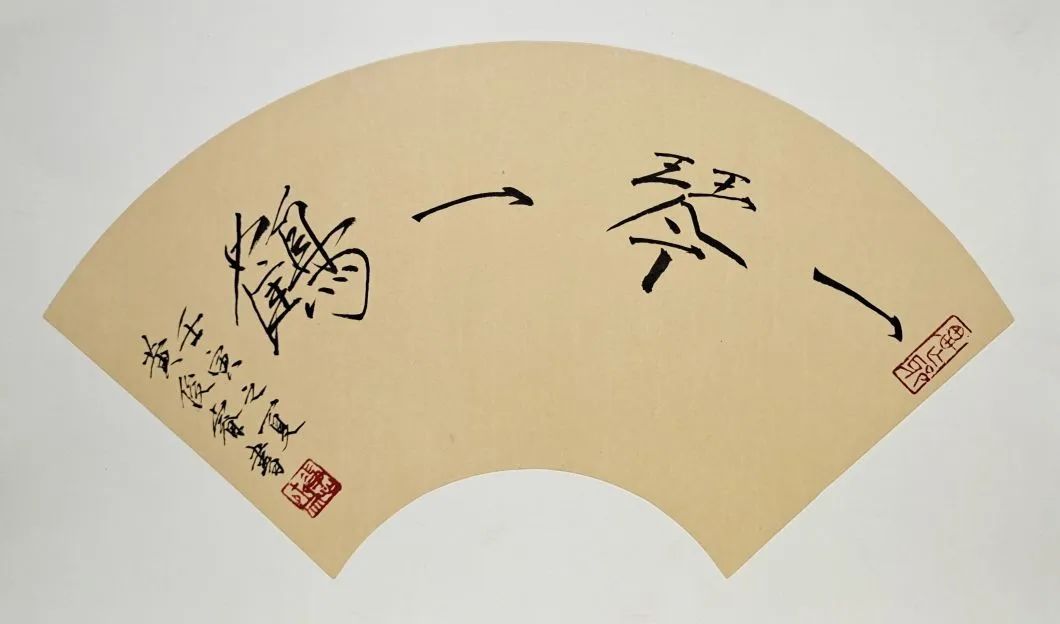 一琴一鶴
壬寅之夏
黄俊俭書